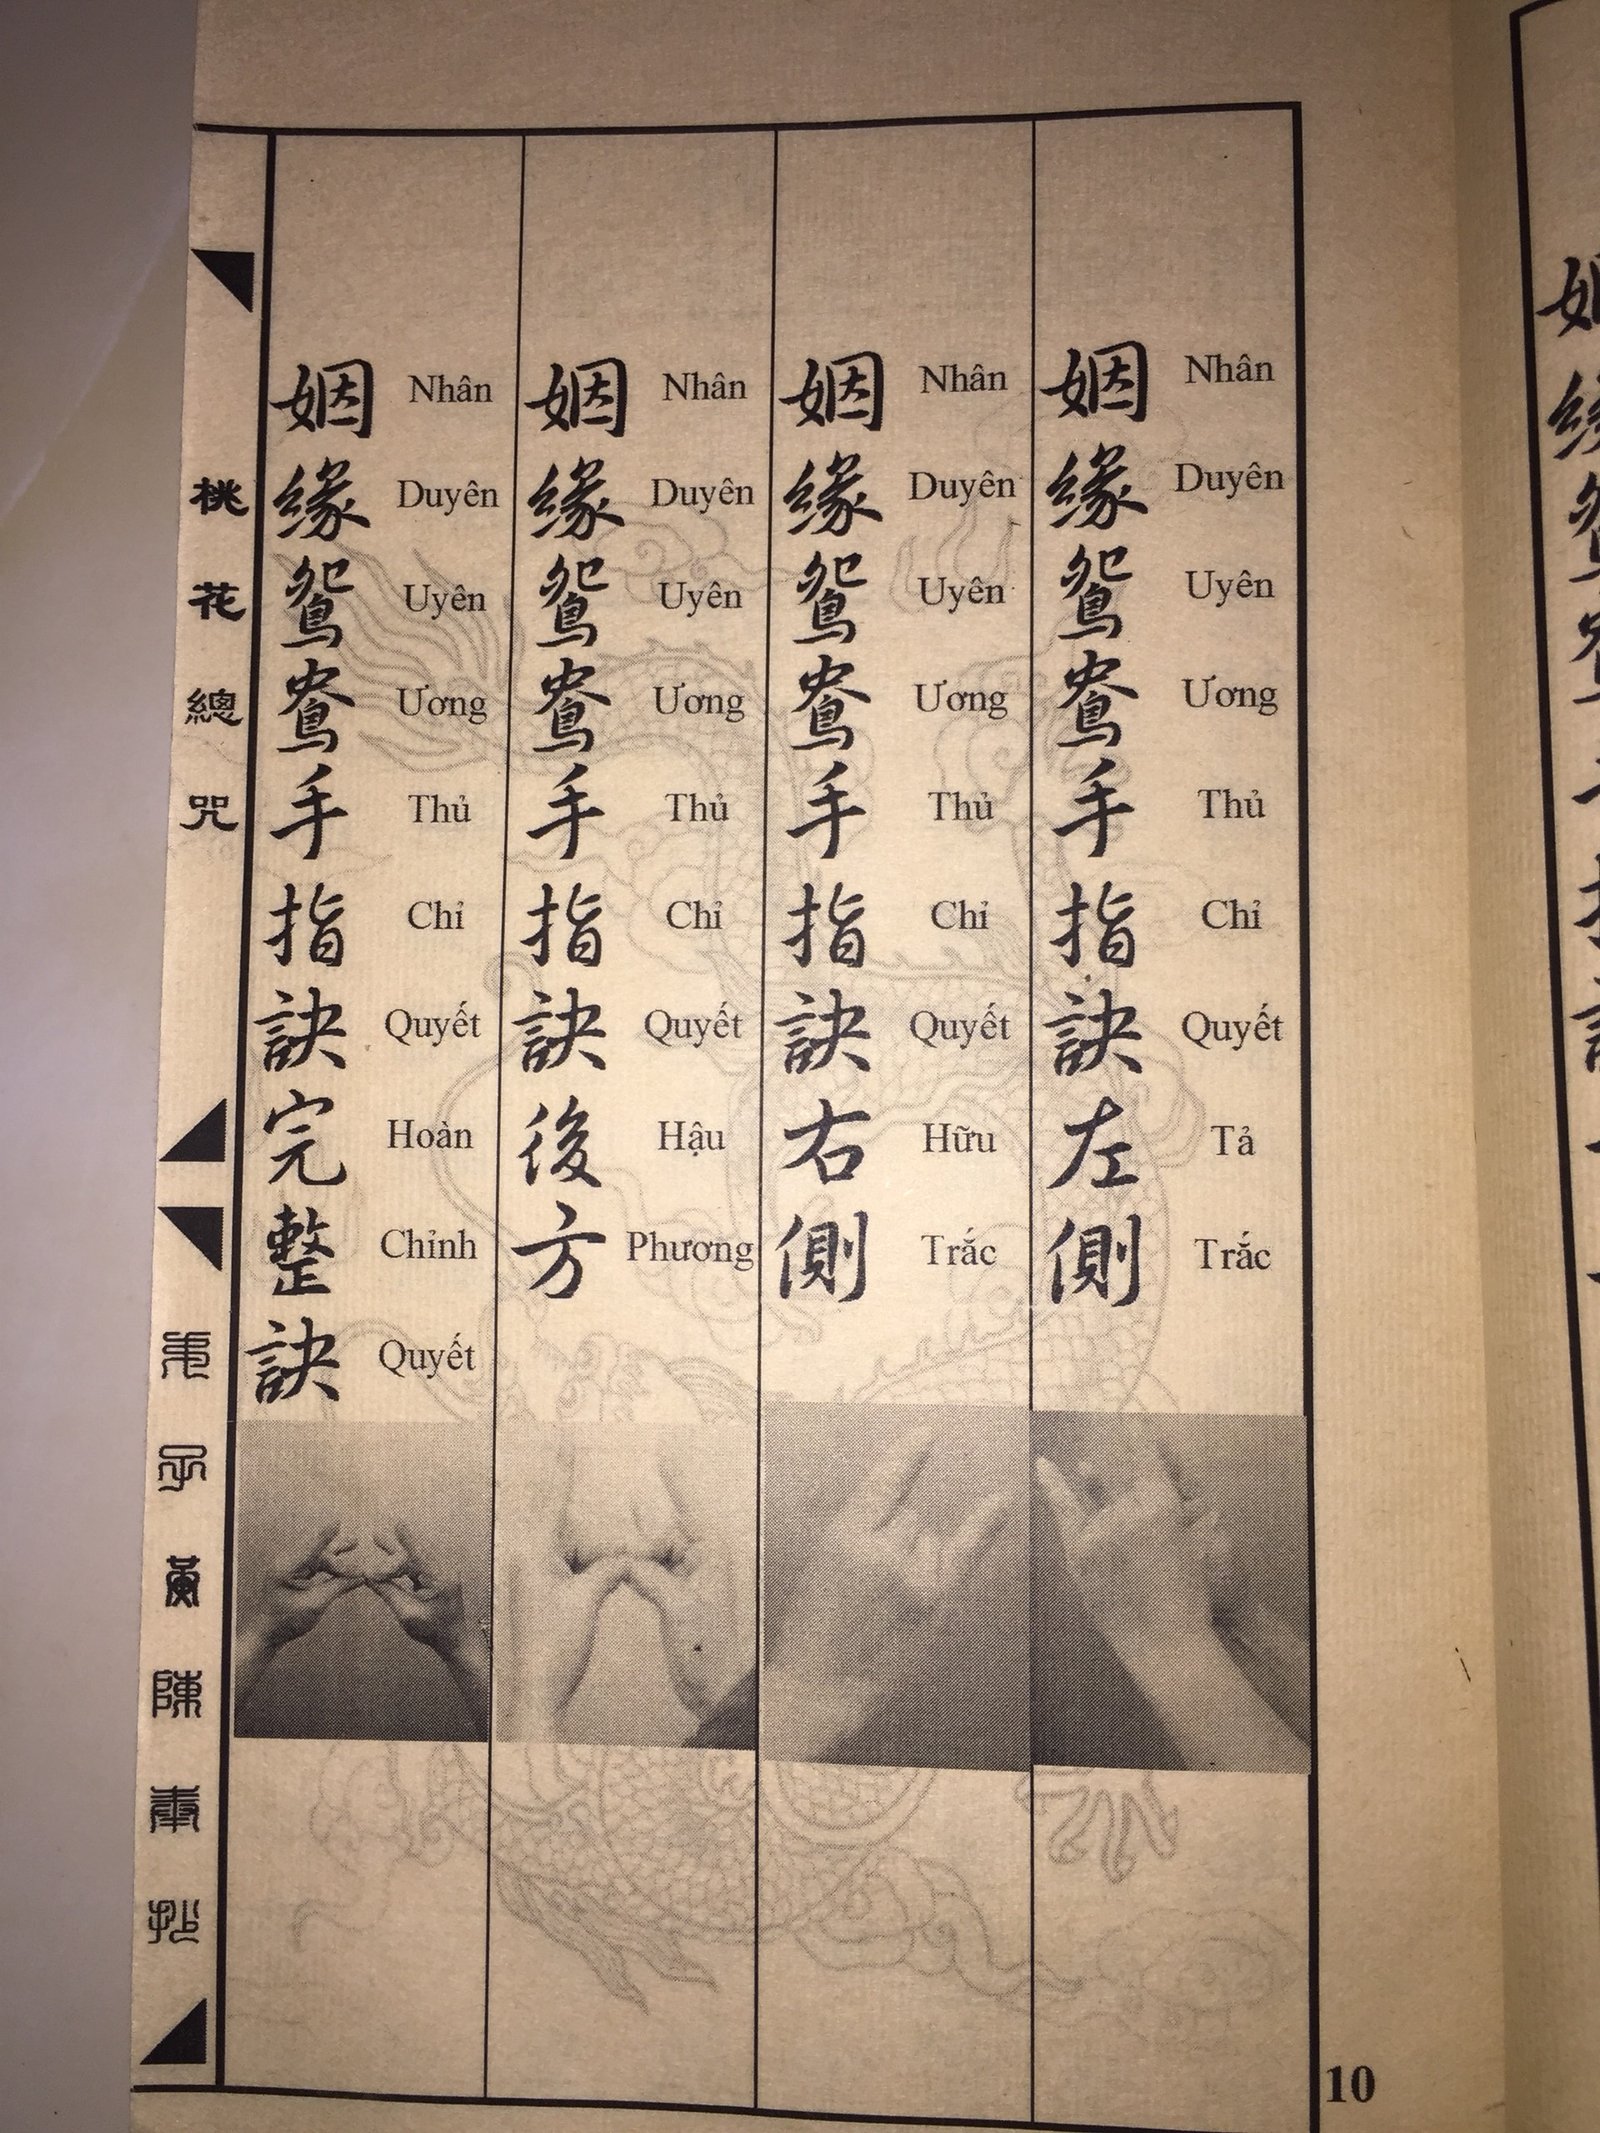 姻緣鴛鴦手指訣左側
Nhân Duyên Uyên Ương Thủ Chỉ Quyết Tả Trắc
姻緣鴛鴦手指訣右側
Nhân Duyên Uyên Ương Thủ Chỉ Quyết Hữu Trắc
姻緣鴛鴦手指訣後方
Nhân Duyên Uyên Ương Thủ Chỉ Quyết Hậu Phương
姻緣鴛鴦手指訣完整訣
Nhân Duyên Uyên Ương Thủ Chỉ Quyết Hoàn Chỉnh Quyết
桃花總咒
弟子黃陳奉抄
10